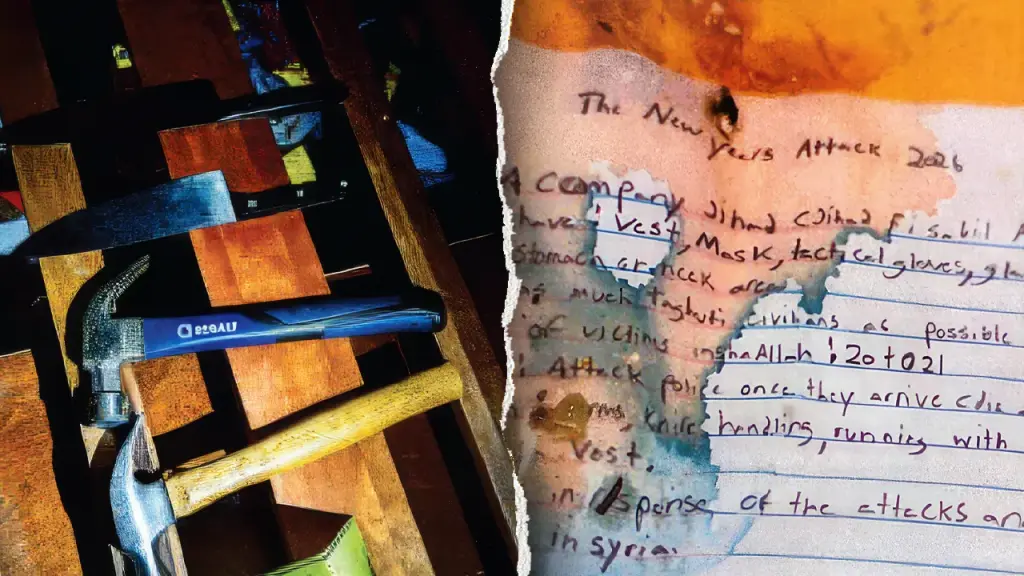 The New Years Attack 2026
Jihad (Jihad fi sabil
have: Vest, Mask, tactical gloves,
stomach or neck area
much taghuti civilians as possible
of victims inshaAllah: 20 to 021
: Attack police once they arrive
Knife handling, running with
Vest.
in response of the attacks
in syria.